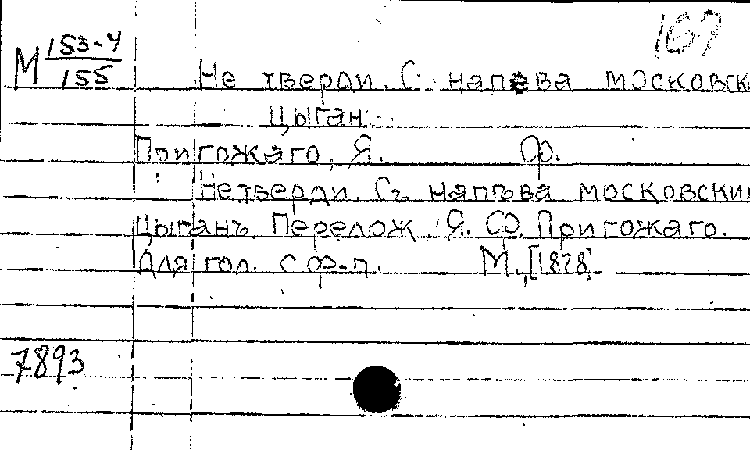 167
М 153-4
155
Не тверди. С напева московск
Цыган.
Пригожаго, Я. Ф.
Нетверди. Съ напѣва московски
Цыганъ. Перелож. Я. Ф. Пригожаго.
Для гол. с ф-п. М., [1878].
7893